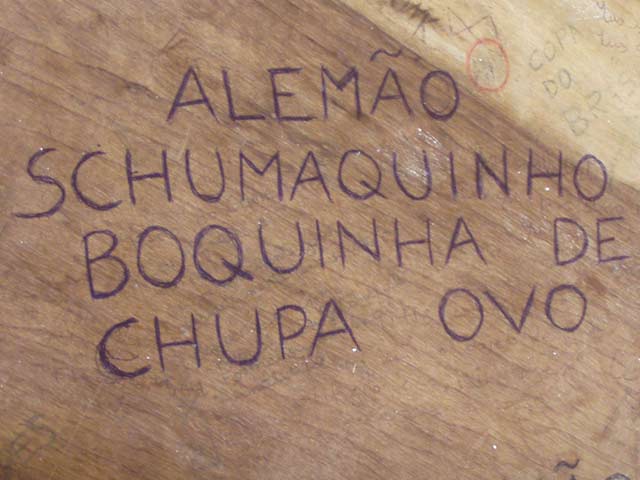 ALEMÃO
SCHUMAQUINHO
BOQUINHA DE
CHUPA OVO
COPA
DO
BRASIL